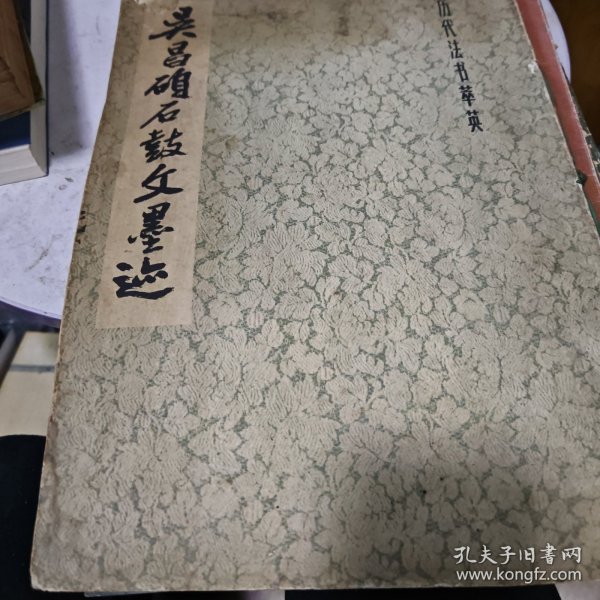 历代法书萃英
吴昌碩石鼓文墨迹
孔夫子旧书网
www.kongfz.com